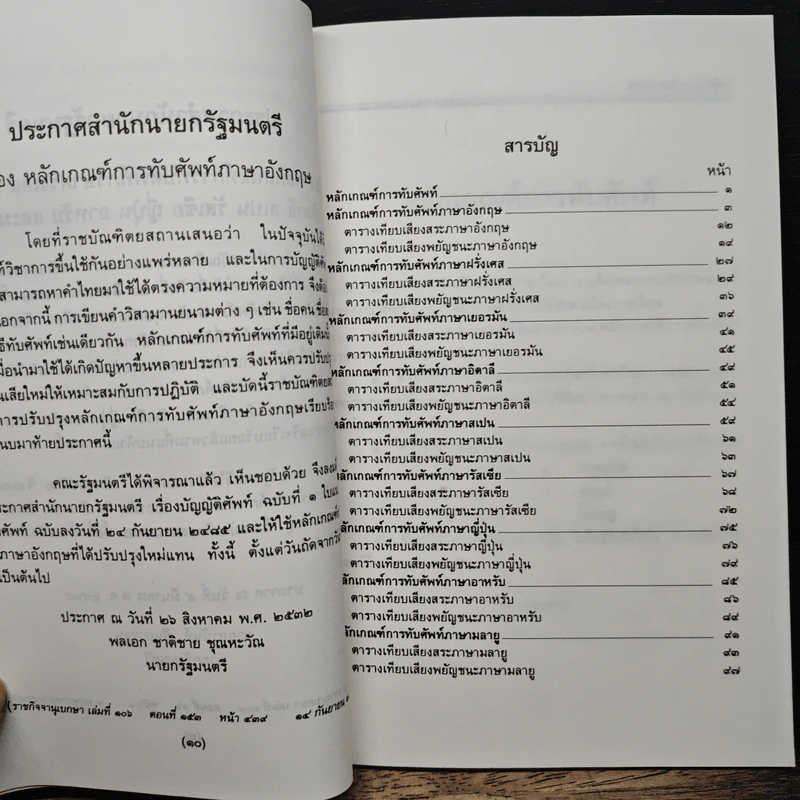 ประกาศสำนักนายกรัฐมนตรี
หลักเกณฑ์การทับศัพท์ภาษาอังกฤษ
โดยที่ราชบัณฑิตยสถานเสนอว่า ในปัจจุบันได้
ท์วิชาการขึ้นใช้กันอย่างแพร่หลาย และในการบัญญัติ
สามารถหาคำไทยมาใช้ได้ตรงความหมายที่ต้องการ จึง
อกจากนี้ การเขียนคำวิสามานยนามต่าง ๆ เช่น ชื่อคน
ธีทับศัพท์เช่นเดียวกัน หลักเกณฑ์การทับศัพท์ที่มีอยู่เดิม
มื่อนำมาใช้ได้เกิดปัญหาขึ้นหลายประการ จึงเห็นควรปรับ
เสียใหม่ให้เหมาะสมกับการปฏิบัติ และบัดนี้ราชบัณฑิต
การปรับปรุงหลักเกณฑ์การทับศัพท์ภาษาอังกฤษเรียบ
นบมาท้ายประกาศนี้
คณะรัฐมนตรีได้พิจารณาแล้ว เห็นชอบด้วย จึง
ระกาศสำนักนายกรัฐมนตรี เรื่องบัญญัติศัพท์ ฉบับที่ ๑
ศัพท์ ฉบับลงวันที่ ๒๔ กันยายน ๒๔๘๕ และให้ใช้หลักเกณฑ์
ภาษาอังกฤษที่ได้ปรับปรุงใหม่แทน ทั้งนี้ ตั้งแต่วันถัดจาก
เป็นต้นไป
ประกาศ ณ วันที่ ๒๖ สิงหาคม พ.ศ. ๒๕๓๒
พลเอก ชาติชาย ชุณหะวัณ
นายกรัฐมนตรี
(ราชกิจจานุเบกษา เล่มที่ ๑๐๖ ตอนที่ ๑๕๓ หน้า ๔๓๙ ๑๔ กันยายน
(๑๐)
สารบัญ
หน้า
หลักเกณฑ์การทับศัพท์ ๑
หลักเกณฑ์การทับศัพท์ภาษาอังกฤษ ๓
ตารางเทียบเสียงสระภาษาอังกฤษ ๑๒
ตารางเทียบเสียงพยัญชนะภาษาอังกฤษ ๑๙
หลักเกณฑ์การทับศัพท์ภาษาฝรั่งเศส ๒๗
ตารางเทียบเสียงสระภาษาฝรั่งเศส ๒๙
ตารางเทียบเสียงพยัญชนะภาษาฝรั่งเศส ๓๖
หลักเกณฑ์การทับศัพท์ภาษาเยอรมัน ๓๙
ตารางเทียบเสียงสระภาษาเยอรมัน ๔๑
ตารางเทียบเสียงพยัญชนะภาษาเยอรมัน ๔๕
หลักเกณฑ์การทับศัพท์ภาษาอิตาลี ๔๙
ตารางเทียบเสียงสระภาษาอิตาลี ๕๑
ตารางเทียบเสียงพยัญชนะภาษาอิตาลี ๕๔
หลักเกณฑ์การทับศัพท์ภาษาสเปน ๕๙
ตารางเทียบเสียงสระภาษาสเปน ๖๑
ตารางเทียบเสียงพยัญชนะภาษาสเปน ๖๓
หลักเกณฑ์การทับศัพท์ภาษารัสเซีย ๖๗
ตารางเทียบเสียงสระภาษารัสเซีย ๖๘
ตารางเทียบเสียงพยัญชนะภาษารัสเซีย ๗๒
หลักเกณฑ์การทับศัพท์ภาษาญี่ปุ่น ๗๕
ตารางเทียบเสียงสระภาษาญี่ปุ่น ๗๖
ตารางเทียบเสียงพยัญชนะภาษาญี่ปุ่น ๗๙
หลักเกณฑ์การทับศัพท์ภาษาอาหรับ ๘๕
ตารางเทียบเสียงสระภาษาอาหรับ ๘๖
ตารางเทียบเสียงพยัญชนะภาษาอาหรับ ๘๙
หลักเกณฑ์การทับศัพท์ภาษามลายู ๙๑
ตารางเทียบเสียงสระภาษามลายู ๙๓
ตารางเทียบเสียงพยัญชนะภาษามลายู ๙๗